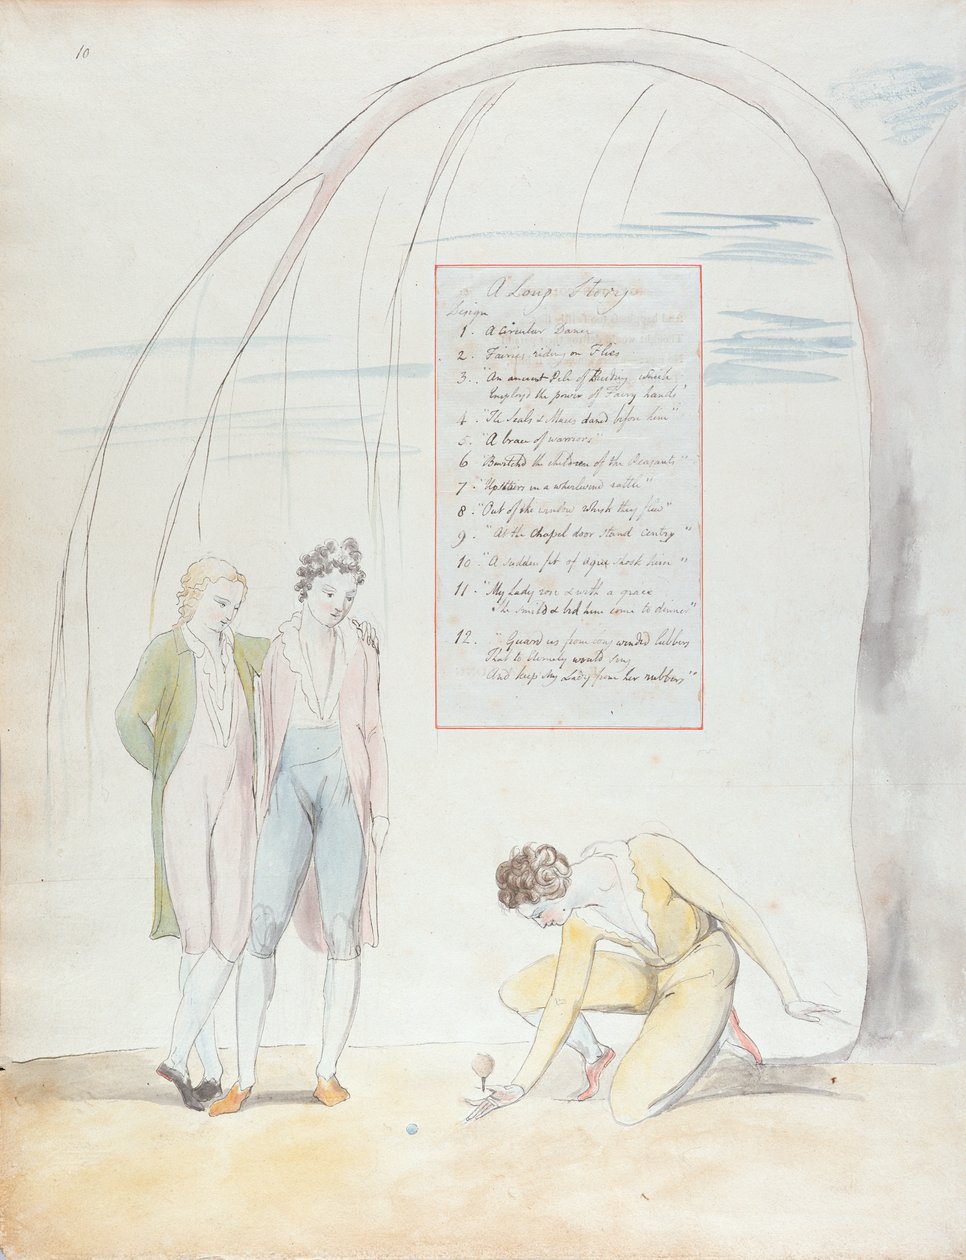 10
A Long Story
Design
1. A circular Dance
2. Fairies riding on Flies
3. "An ancient Pile of Building which
Employd the power of Fairy hands"
4. "The Seals & Maces dancd before him"
5. "A brace of warriors"
6 "Bewitchd the children of the Peasants"
7. "Upstairs in a whirlwind rattle"
8. "Out of the window whisk they flew"
9 "At the Chapel door stand centry"
10. "A sudden fit of ague shook him"
11. "My Lady rose & with a grace
She smild & bid him come to dinner"
12. "Guard us from long winded lubbers
That to eternity would sing
And keep my Lady from her rubbers"